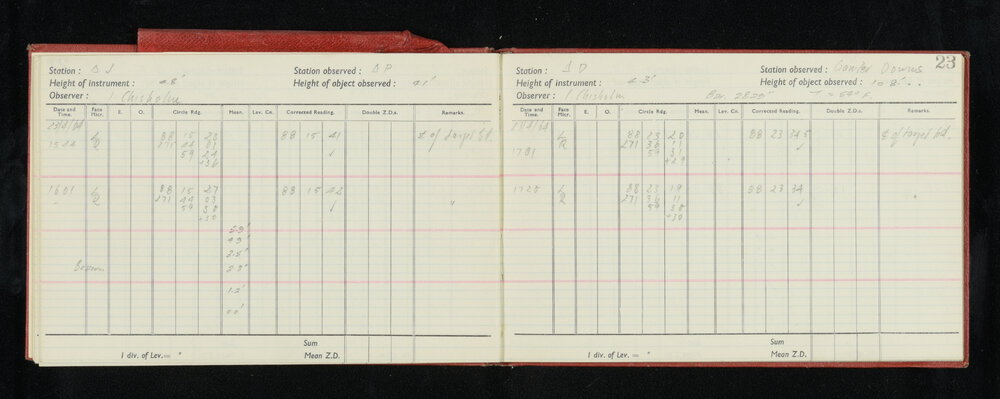 Station : Δ J Station observed : Δ P
Height of instrument : 4.8' Height of object observed : 4.1'
Observer : I Chisholm
Date and Time. Face Micr. E. O. Circle Rdg. Mean. Lev. Cn. Corrected Reading. Double Z.D.s. Remarks.
L 88 15 20 88 15 41 of target bd.
1544 R 271 44 01
59 24 ✓
+36
1601 L 88 15 27 88 15 42 "
" R 271 44 03
59 30 ✓
+30
2.5'
1.2'
0.0'
Sum
1 div. of Lev.= " Mean Z.D.
23
Station : Δ D Station observed : Downs
Height of instrument : 4.3' Height of object observed :
Observer : I Chisholm
Date and Time. Face Micr. E. O. Circle Rdg. Mean. Lev. Cn. Corrected Reading. Double Z.D.s. Remarks.
L 88 23 20 88 23 34.5 of target bd.
R 271 36 11 ✓
1701 59 31
+29
1720 L 88 23 19 88 23 34
R 271 36 11 ✓ "
59 30
+30
Sum
1 div. of Lev.= " Mean Z.D.